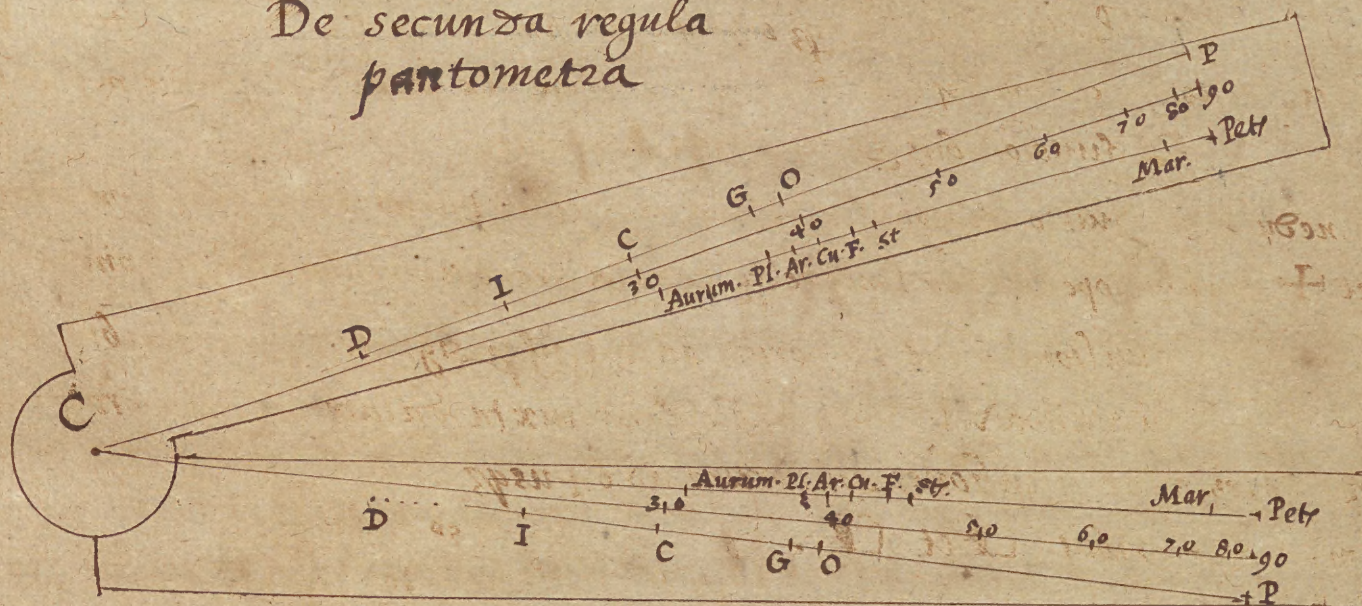 De secunda regula
pantometra
P
90
80
70
60
50
40
30
Petr
Mar.
G O
C
I
D
Aurum. Pl. Ar. Cu. F. St
C
Aurum. Pl. Ar. Cu. F. St.
Mar.
Petr
30
40
50
60
70
80
90
D
I
C
G O
P